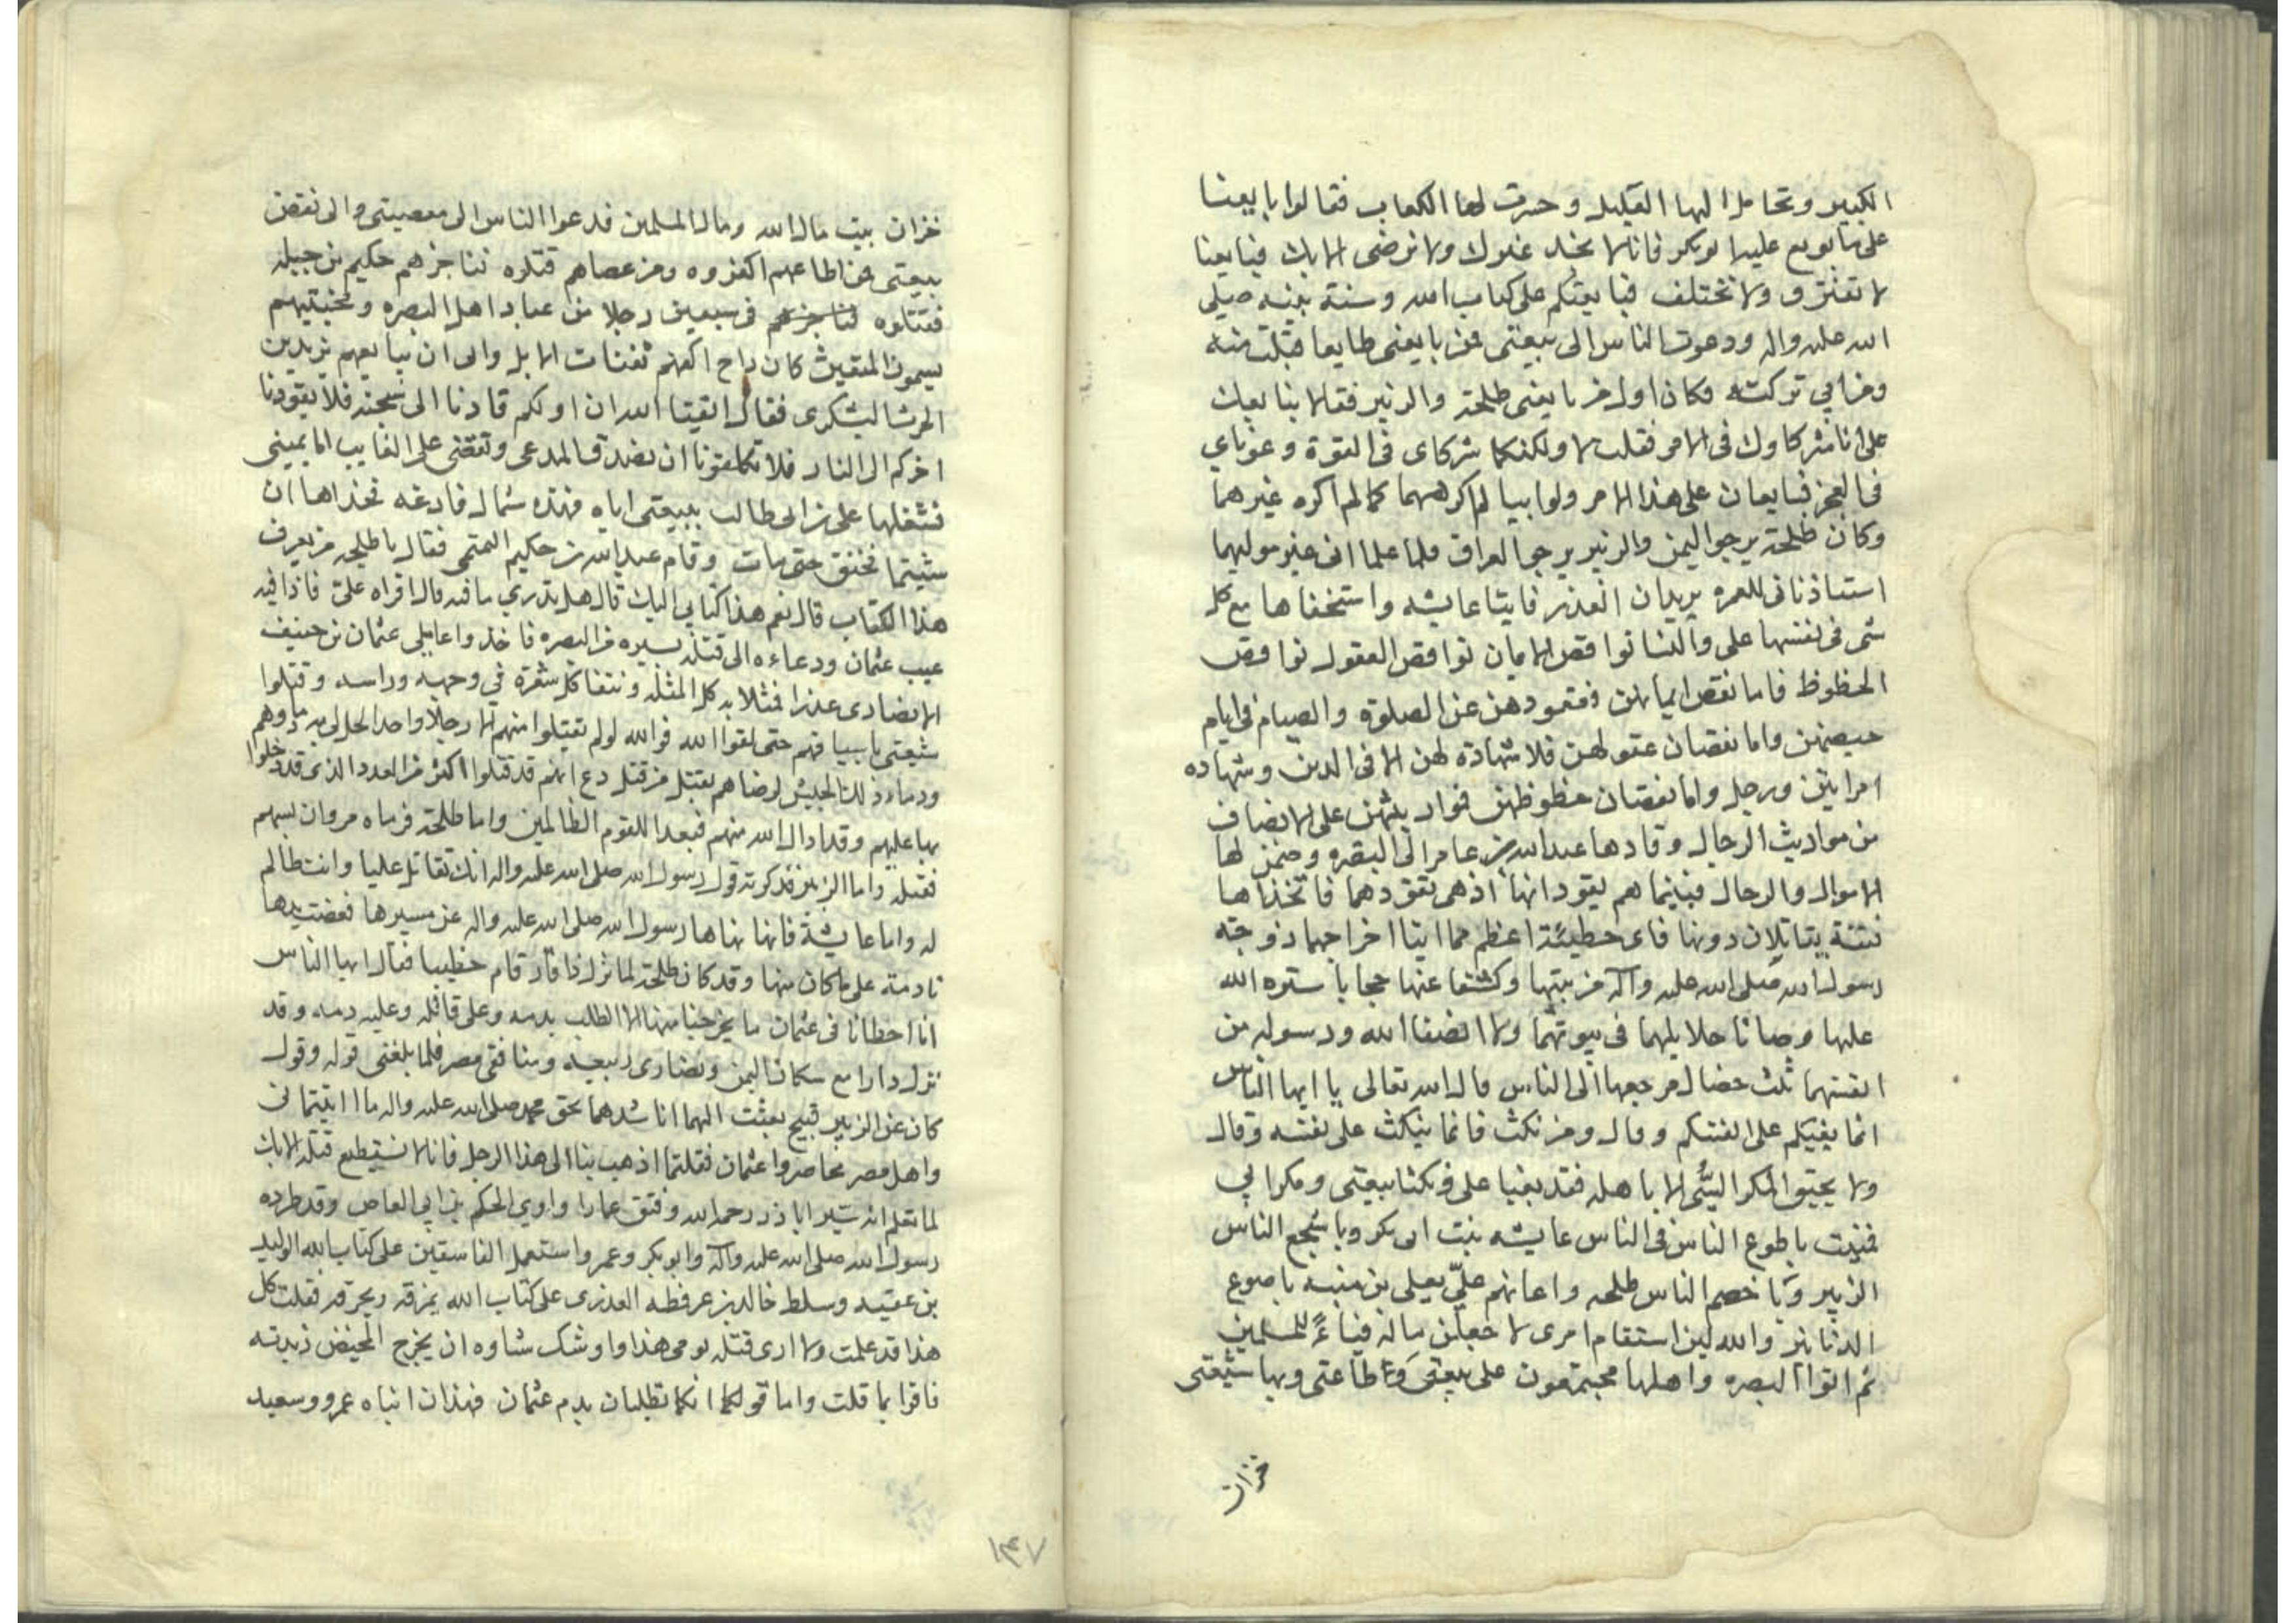 الكبير وتحامل اليها العليل وحسرت لها الكعاب فقالوا بايعنا
على ما بويع عليه ابوبكر فانا لا نجد غيرك ولا نرضى الا بك فبايعنا
لا نفترق ولا نختلف فبايعتكم على كتاب الله وسنة نبيه صلى
الله عليه واله ودعوت الناس الى بيعتى فمن بايعنى طايعا قبلت منه
ومن ابي تركته فكان اول من بايعنى طلحة والزبير فقالا نبايعك
على انا شركاوك فى الامر فقلت لا ولكنكما شركاى فى القوة وعوناي
فى العجز فبايعان على هذا الامر ولو ابيا لم اكرههما كما لم اكره غيرهما
وكان طلحة يرجوا اليمن والزبير يرجوا العراق فلما علما انى غير موليهما
استاذنانى للعمره يريدان الغدر فايتا عايشه واستخفاها مع كل
شى فى نفسها على والنسا نواقص الايمان نواقص العقول نواقص
الحظوظ فاما نقص ايمانهن فقعودهن عن الصلوة والصيام فى ايام
حيضهن واما نقصان عقولهن فلا شهادة لهن الا فى الدين وشهاده
امراتين ورجل واما نقصان حظوظهن فموارثهن على الانصاف
من مواريث الرجال وقادها عبدالله بن عامر الى البصره وضمن لها
الاموال والرجال فبينما هم يقودانها اذ هى تقودهما فاتخذاها
فئة يقاتلان دونها فاى خطيئة اعظم مما اتيا اخراجهما زوجة
رسول الله صلى الله عليه وآله من بيتها وكشفا عنها حجابا ستره الله
عليها وصانا حلايلهما فى بيوتهما ولا انصفا الله ورسوله من
انفسهما ثلث خصال مرجعها الى الناس قال الله تعالى يا ايها الناس
انما بغيكم على انفسكم وقال ومن نكث فانما ينكث على نفسه وقال
ولا يحيق المكر السّيّى الا باهله فقد بغيا على ونكثا بيعتى ومكرا بي
فمنيت باطوع الناس فى الناس عايشه بنت ابى بكر وباشجع الناس
الزبير وباخصم الناس طلحه واعانهم علىّ يعلى بن منبه باصوع
الدنانير والله لين استقام امرى لاجعلن ماله فياءً للمسلمين
ثم اتوا البصره واهلها مجتمعون على بيعتى وطاعتى وبها شيعتى
خزان
خزان بيت مال الله ومال المسلمين فدعوا الناس الى معصيتى والى نقض
بيعتى فمن اطاعهم اكفروه ومن عصاهم قتلوه فناجزهم حكيم بن جبله
فقتلوه لناجزهم فى سبعين رجلا من عباد اهل البصره ومخبتيهم
يسمون المثفنين كان راح اكفهم ثفنات الابل وابى ان يبايعهم يزيد بن
الحرث اليشكرى فقال اتقيا الله ان اولكم قادنا الى الجنه فلا يقودنا
اخركم الى النار فلا تكلفونا ان نصدق المدعى ونقضى على الغايب اما يمينى
فشغلها على بن ابى طالب ببيعتى اياه وهذه شمالى فارغه فخذاها ان
شيتما فخنق حتى مات وقام عبدالله بن حكيم التميمى فقال يا طلحه من يعرف
هذا الكتاب قال نعم هذا كتابي اليك قال هل تدري ما فيه قال اقراه على فاذا فيه
عيب عثمان ودعاءه الى قتله فسيره من البصره فاخذوا عاملي عثمان بن حنيف
الانصارى غدرا فمثلا به كل المثلة ونتفا كل شعرة في وجهه وراسه وقتلوا
شيعتى
بها عليهم وقد ادال الله منهم فبعدا للقوم الظالمين واما طلحة فرماه مروان بسهم
فقتله واما الزبير فذكرته قول رسول الله صلى الله عليه واله انك تقاتل عليا وانت ظالم
له واما عايشة فانها نهاها رسول الله صلى الله عليه واله عن مسيرها فعضت يدها
نادمة على ما كان منها وقد كان طلحة لما نزل ذا قار قام خطيبا فقال ايها الناس
انا اخطانا فى عثمان ما يخرجنا منها الا الطلب بدمه وعلى قاتله وعليه دمه وقد
نزل دارا مع سكان اليمن ونصارى ربيعه ومنافقى مصر فلما بلغنى قوله وقول
كان عن الزبير قبيح بعثت اليهما اناشدهما بحق محمد صلى الله عليه واله ما اتيتمانى
واهل مصر محاصروا عثمان فقلتما اذهب بنا الى هذا الرجل فانا لا نستطيع قتله الا بك
لما تعلم انه سير اباذر رحمه الله وفتق عمارا واوي الحكم بن ابي العاص وقد طرده
رسول الله صلى الله عليه وآله وابوبكر وعمر واستعمل الفاسقين على كتاب الله الوليد
بن عقبه وسلط خالد بن عرفطه العذرى على كتاب الله يمزقه ويحرقه فقلت كل
هذا قد علمت ولا ارى قتله يومى هذا واوشك سقاوه ان يخرج المخيض زبدته
فاقرا بما قلت واما قولكما انكما تطلبان بدم عثمان فهذان ابناه عمرو وسعيد
١٣٧